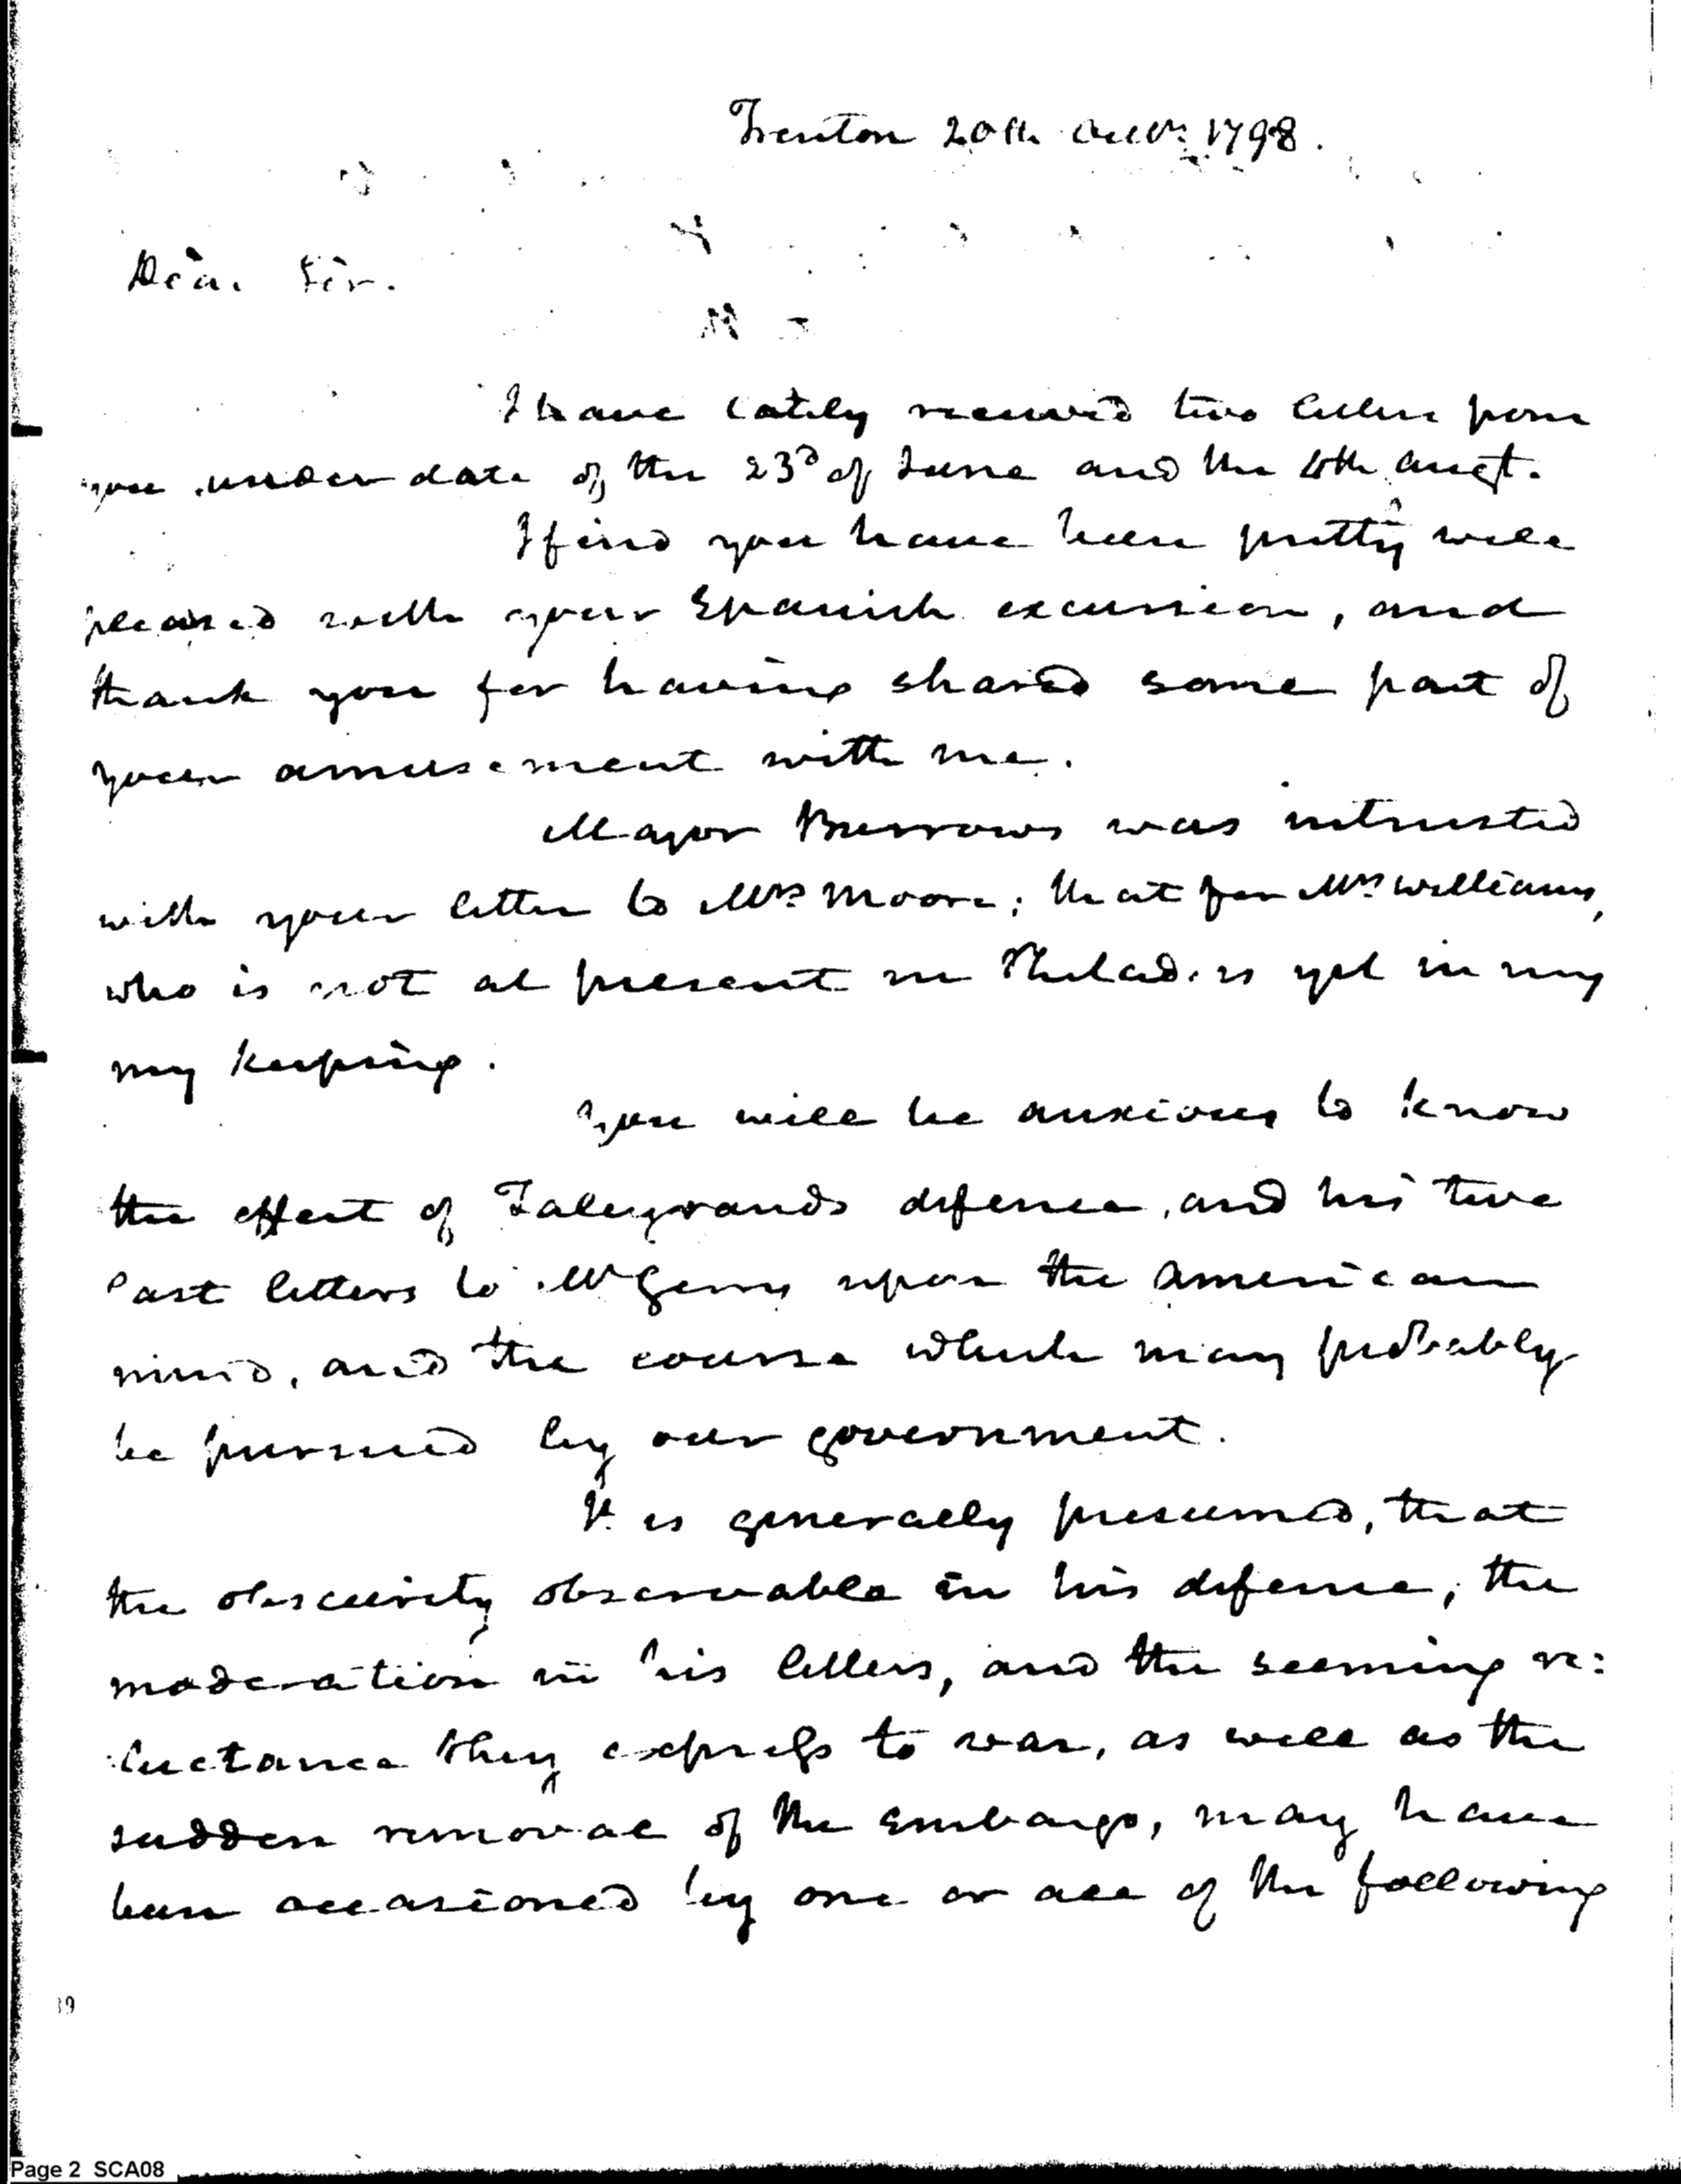 Trenton 20th Octr. 1798.
Dear Sir.
I have lately received two letters from
you under date of the 23d of June and the 4th Augt.
I find you have been pretty well
pleased with your Spanish excursion, and
thank you for having shared some part of
your amusement with me.
Major Burrows was intrusted
with your letter to Mrs. Moore; that for Mrs. Williams,
who is not at present in Philad. is yet in my
my keeping.
You will be anxious to know
the effect of Taleyrands defence, and his two
last letters to Mr Gerry upon the American
mind, and the course which may probably
be pursued by our government.
It is generally presumed, that
the obscurity observable in his defence, the
moderation in his letters, and the seeming re:
:luctance they express to war, as well as the
sudden removal of the embargo, may have
been occasioned by one or all of the following
19
Page 2 SCA08